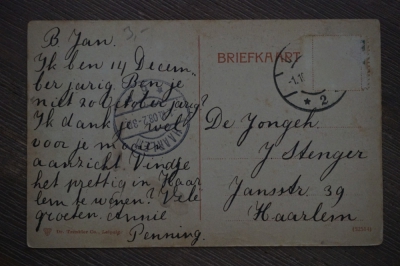 B Jan.
Ik ben 14 Decem-
ber jarig. Ben je
niet 20 october jarig?
Ik dank je wel
voor je mooie
aanzicht. Vind je
het prettig in Haar
lem te wonen? Vele
groeten. Annie
Penning.
3,-
BRIEFKAART
De Jongeh.
J. Stenger
Jansstr. 39
Haarlem
2
HAARLEM